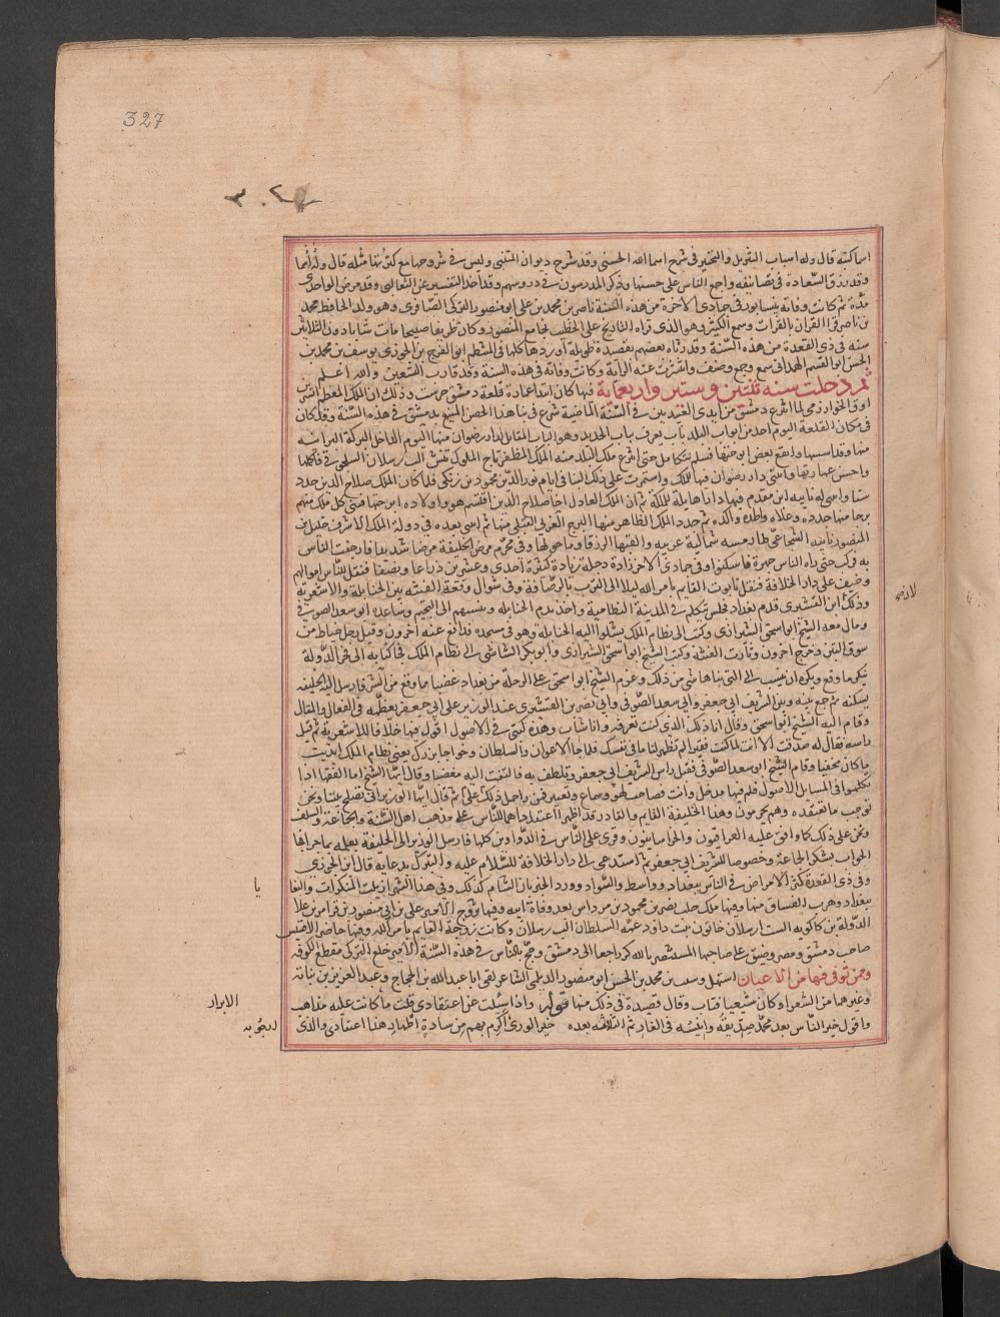 327
اسما كتبه قال وله اسباب النزول والتحبير في شرح اسما الله الحسنى وقد شرح ديوان المتنبي وليس في شروحها مع كثرتها مثله قال
وقد رزق السعادة في تصانيفه واجمع الناس على حسنها وذكرها المدرسون في دروسهم وقد اخذ التفسير عن الثعالبي وقد مرض الواحدي
مدة ثم كانت وفاته بنيسابور في جمادى الاخرة من هذه السنة ناصر بن محمد بن علي ابو منصور التركي وهو والد الحافظ محمد
بن ناصر قرا القران بالقراات وسمع الكثير وهو الذي قراة التاريخ على الخطيب بجامع المنصور وكان ظريفا صبيحا مات شابا دون الثلاثين
سنه في ذي القعدة من هذه السنة وقد رثاه بعضهم بقصيدة طويلة اوردها كلها في المنتظم ابو الفرج بن الجوزي يوسف بن محمد بن
الحسن ابو القسم الهمداني سمع وجمع وصنف وانتشرت عنه الرواية وكانت وفاته في هذه السنة وقد قارب التسعين والله اعلم
ثم دخلت سنه وستين واربعماية فيها كان ابتدا عمارة قلعة دمشق وذلك ان الملك المعظم
اوق الخوارزمي لما انتزع دمشق من ايدي العبيديين في السنة الماضية شرع في بنا هذا الحصن المنيع بدمشق في هذه السنة وقد كان
في مكان القلعة اليوم احد من ابواب البلد باب يعرف بباب الحديد وهو الباب المقابل لدار رضوان منها اليوم الداخل البركة البرانيه
منها وقد اسسها وارتفع بعض ابرجتها فلم يتكامل حتى انتزع ملك البلد منه الملك المظفر تاج الملوك تتش الب رسلان السلجوقي فاكملها
واحسن عمارتها وابتنى دار رضوان فيها للملك واستمرت على ذلك البنا في ايام نور الدين محمود بن زنكي فلما كان الملك صلاح الدين جدد
شيا وابتنى له نايبه ابن مقدم فيها دارا هايلة للمملكة ثم ان الملك العادل اخا صلاح الدين اقتسم هو واولاده ابرجتها فبنى كل ملك منهم
برجا منها جدده وعلاه واطده واكده ثم جدد الملك الظاهر منها البرج الغربي القبلي منها ثم ابتنى بعده في دولة الملك الاشرف خليل بن
المنصور نايبه الشجاعي الطارمه شمالية غربيه والقبة الزرقا وما حولها وفي محرم مرض الخليفة مرضا شديدا فارجف الناس
به فركب حتى راه الناس جهرة فاسكنوا وفي جمادى الاخر زادة دجلة زيادة كثيرة احدى وعشرين ذراعا ونصفا فنقل الناس اموالهم
وخيف على دار الخلافة فنقل تابوت القايم بامر الله ليلا الى الترب بالرصافة وفي شوال وقعة الفتنة بين الحنابلة والاشعرية
وذلك ابن القشيري قدم بغداد فجلس يتكلم في المدينة النظامية واخذ يذم الحنابله وينسبهم الى التجسيم وساعده ابو سعد الصوفي
ومال معه الشيخ ابو اسحق الشيرازي وكتب الى نظام الملك يشكوا اليه الحنابلة وهو في مسجده فدافع عنه اخرون وقتل رجل خياط من
سوق التبن وجرح اخرون وثارت الفتنة وكتب الشيخ ابو اسحق الشيرازي وابو بكر الشاشي الى نظام الملك فجا كتابه الى فخر الدولة
ينكر ما وقع ويكره ان ينسب الى التي بناها شي من ذلك وعزم الشيخ ابو اسحق على الرحلة من بغداد غضبا مما وقع من الشر فارسل اليه الخليفه
يسكنه ثم جمع بينه وبين الشريف ابي جعفر وابي سعد الصوفي وابي نصر بن القشيري عند الوزير على ابي جعفر يعظمه في الفعال والمقال
وقام اليه الشيخ ابو اسحق وقال انا ذلك الذي كنت تعرفه وانا شاب وهذه كتبي في الاصول اقول فيها خلافا للاشعرية ثم قبل
راسه فقال له صدقت الا انك لما كنت فقيرا لم تظهر لنا ما في نفسك فلما جا الاعوان والسلطان وخواجا بزرك يعني نظام الملك ابديت
ما كان مخفيا وقام الشيخ ابو سعد الصوفي فقبل راس الشريف ابي جعفر وتلطف به فالتفت اليه مغضبا وقال ايها الشيخ اما الفقها اذا
تكلموا في المسايل الاصول فلهم فيها مدخل وانت فصاحب لهو وسماع ثم قال ايها الوزير اني تصلح بيننا ونحن
نوجب ما نعتقده وهم يحرمون وهذا الخليفة القايم والقادر قد اظهرا اعتقادهما للناس على مذهب اهل السنة والجماعة والسلف
ونحن على ذلك كما وافق عليه العراقيون والخراسانيون وقرى على الناس في الدواوين كلها فارسل الوزير الى الخليفة يعلمه بما جرى فجا
الجواب بشكر الجماعة وخصوصا للشريف ابي جعفر ثم استدعي الى دار الخلافة للسلام عليه والتبرك بدعايه قال ابن الجوزي
وفي ذي القعدة كثرة الامراض في الناس ببغداد وواسط والسواد وورد الخبر بان الشام كذلك وفي هذا الشهر ازيلت المنكرات والبغا
ببغداد وهرب الفساق منها وفيها ملك حلب نصر بن محمود بن مرداس بعد وفاة ابيه وفيها تزوج الامير علي بن ابي منصور بن قرامرز علا
الدولة بن كاكويه الست ارسلان خاتون بنت داود عمة السلطان الب رسلان وكانت زوجة القايم بامر الله وفيها حاصر الاقسيس
صاحب دمشق ومصر وضيق على صاحبها المستنصر بالله كر راجعا الى دمشق وحج بالناس في هذه السنة الامير ختلغ التركي مقطع الكوفه
وممن توفي فيها من الاعيان محمد بن الحسن ابو منصور الديلمي الشاعر لقى ابا عبد الله بن الحجاج وعبد العزيز بن نباته
وغيرهما من الشعرا وكان شيعيا فتاب وقال قصيدة في ذلك منها قوله واذا سئلت عن اعتقادي قلت ما كانت عليه مذاهب
الابرار
واقول خير الناس بعد محمد صديقه وانيسه في الغار ثم الثلاثة بعده خير الورى اكرم بهم من سادة اطهار هذا اعتقادي والذي